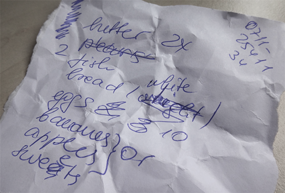 butter 2x
2
fish
bread, white
eggs 10
bananas } or
apples
sweets
071-
25411
34